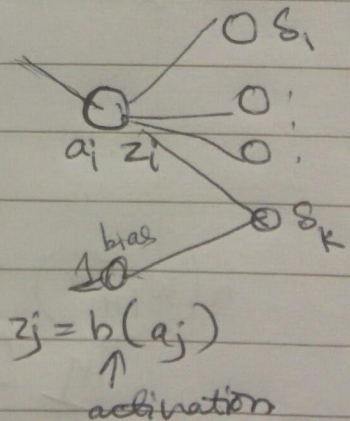 δ₁
aj zj
δk
bias
1
zj = h(aj)
activation